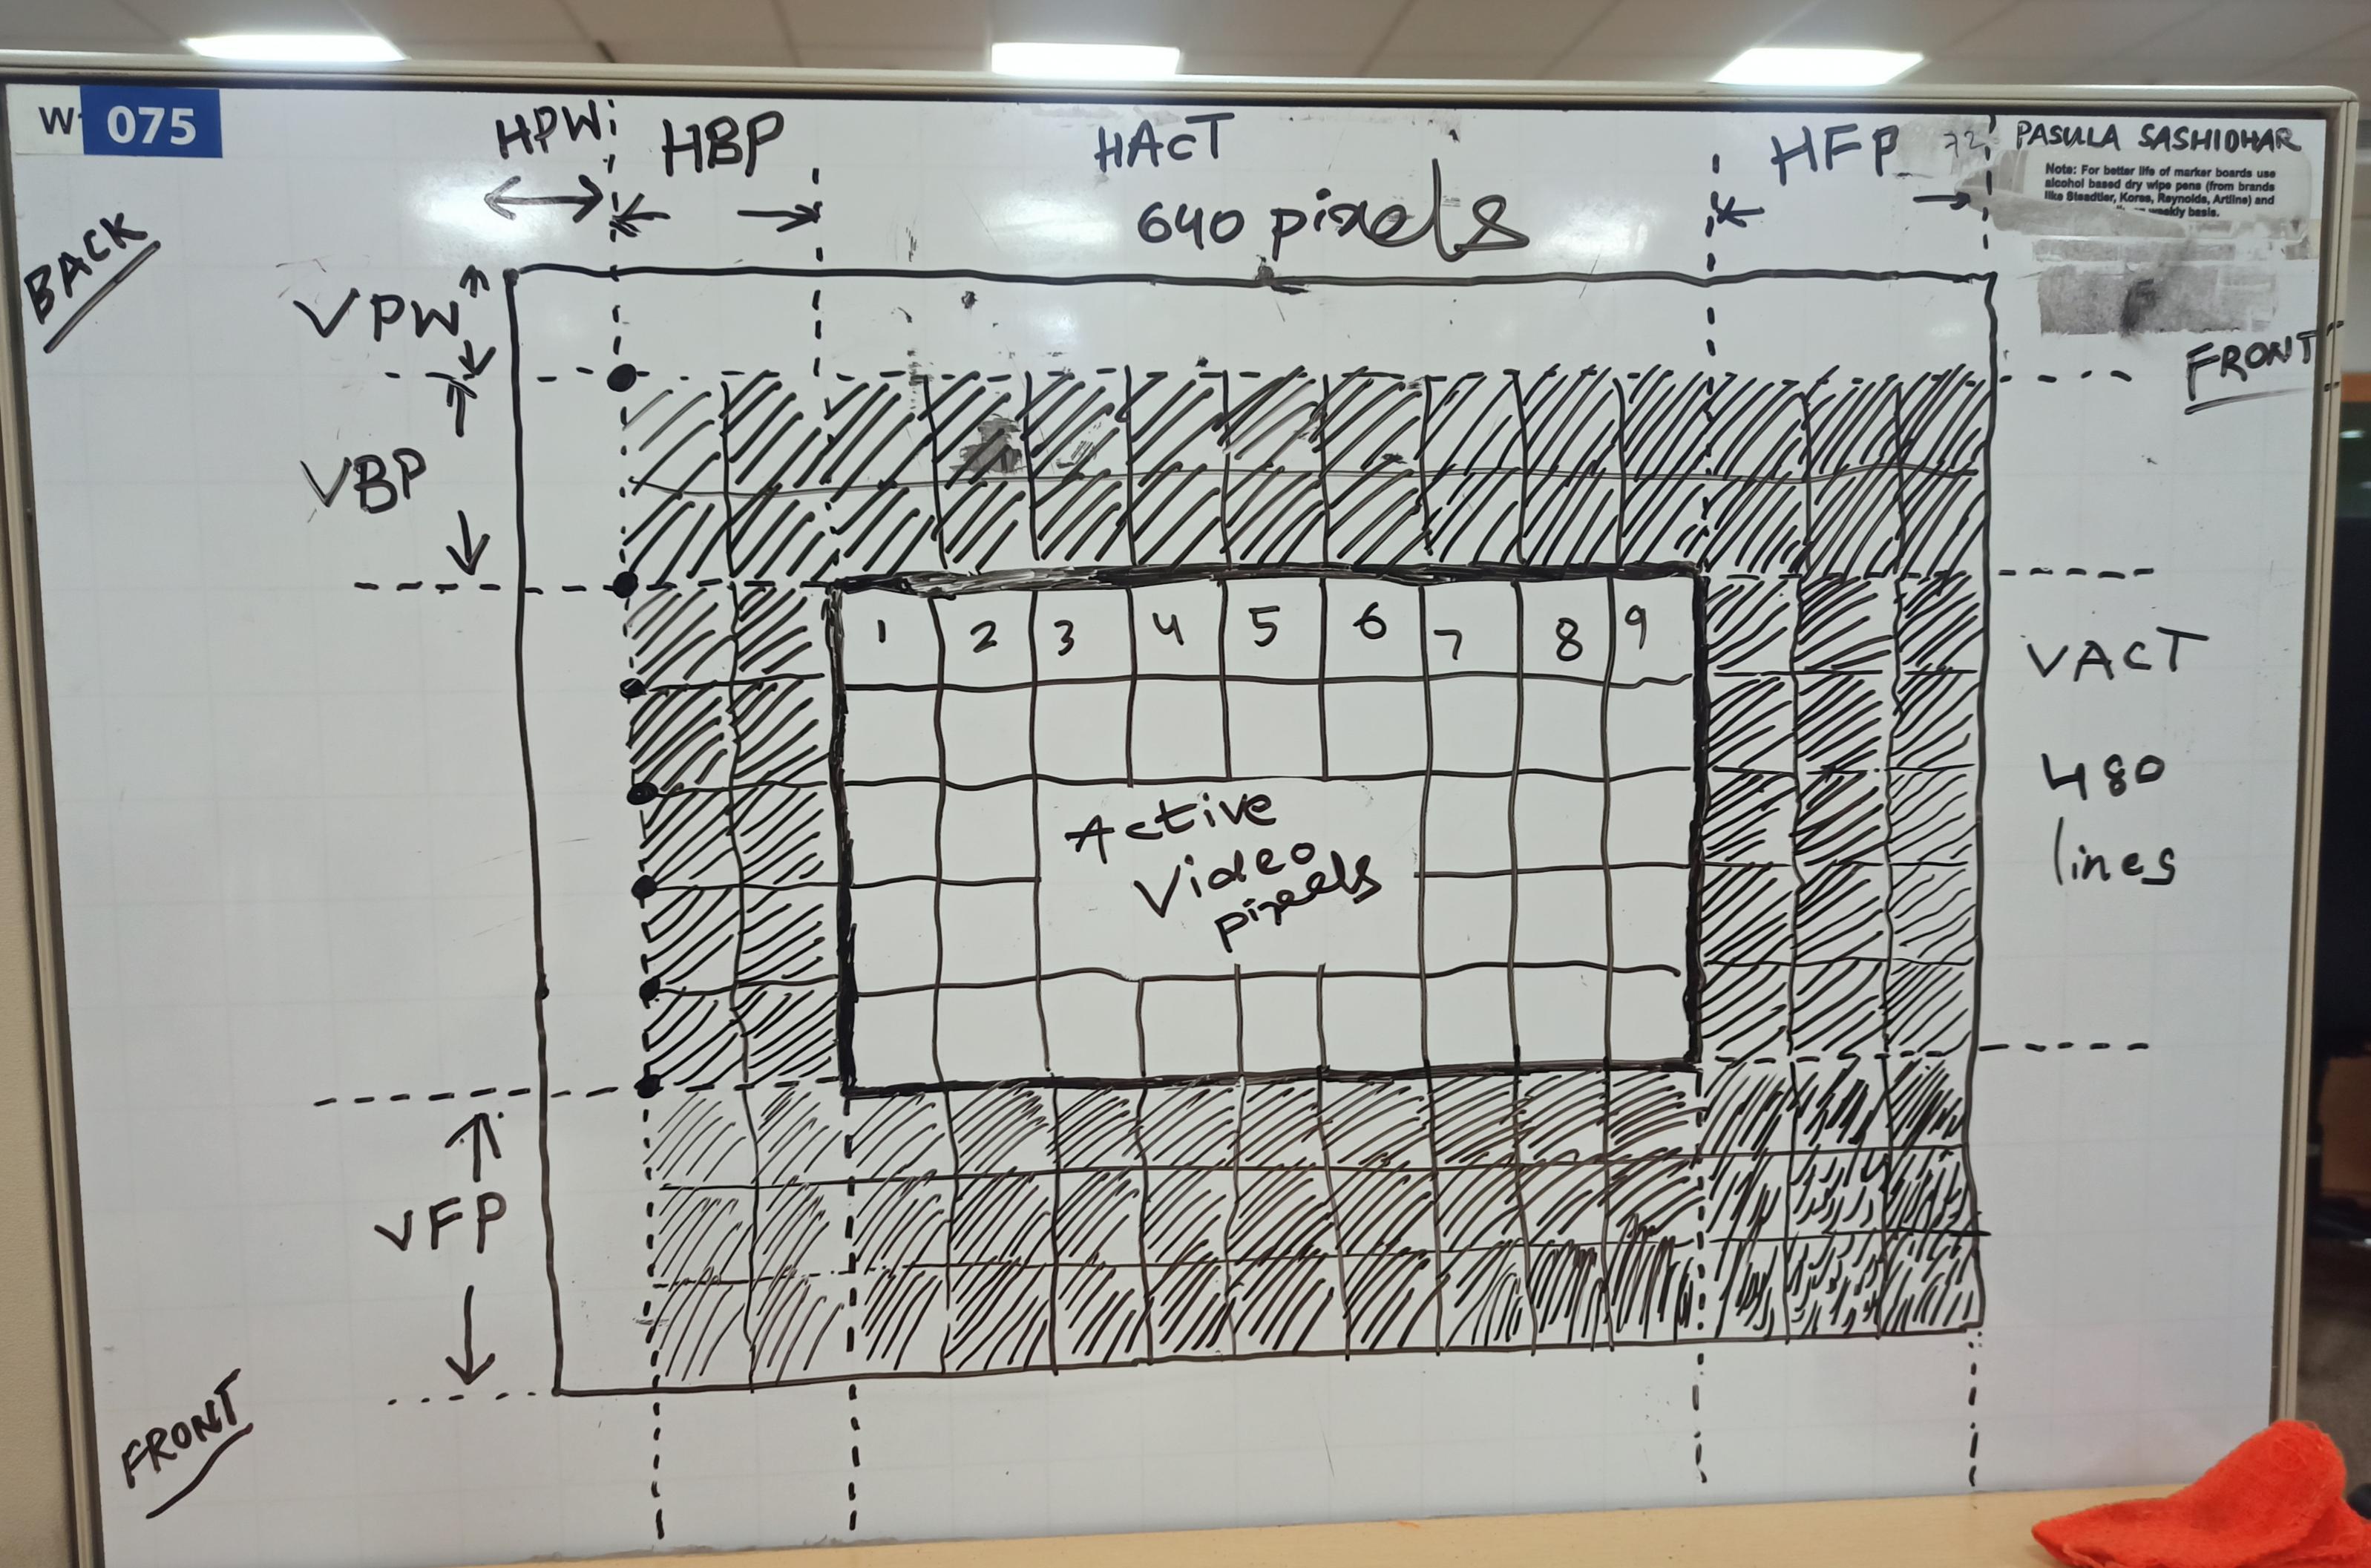 W 075
HPW
HBP
HACT
640 pixels
HFP
PASULA SASHIDHAR
Note: For better life of marker boards use
alcohol based dry wipe pens (from brands
like Steadtler, Kores, Reynolds, Artline) and
weekly basis.
BACK
VPW
FRONT
VBP
1 2 3 4 5 6 7 8 9
VACT
480
lines
Active
Video
pixels
VFP
FRONT